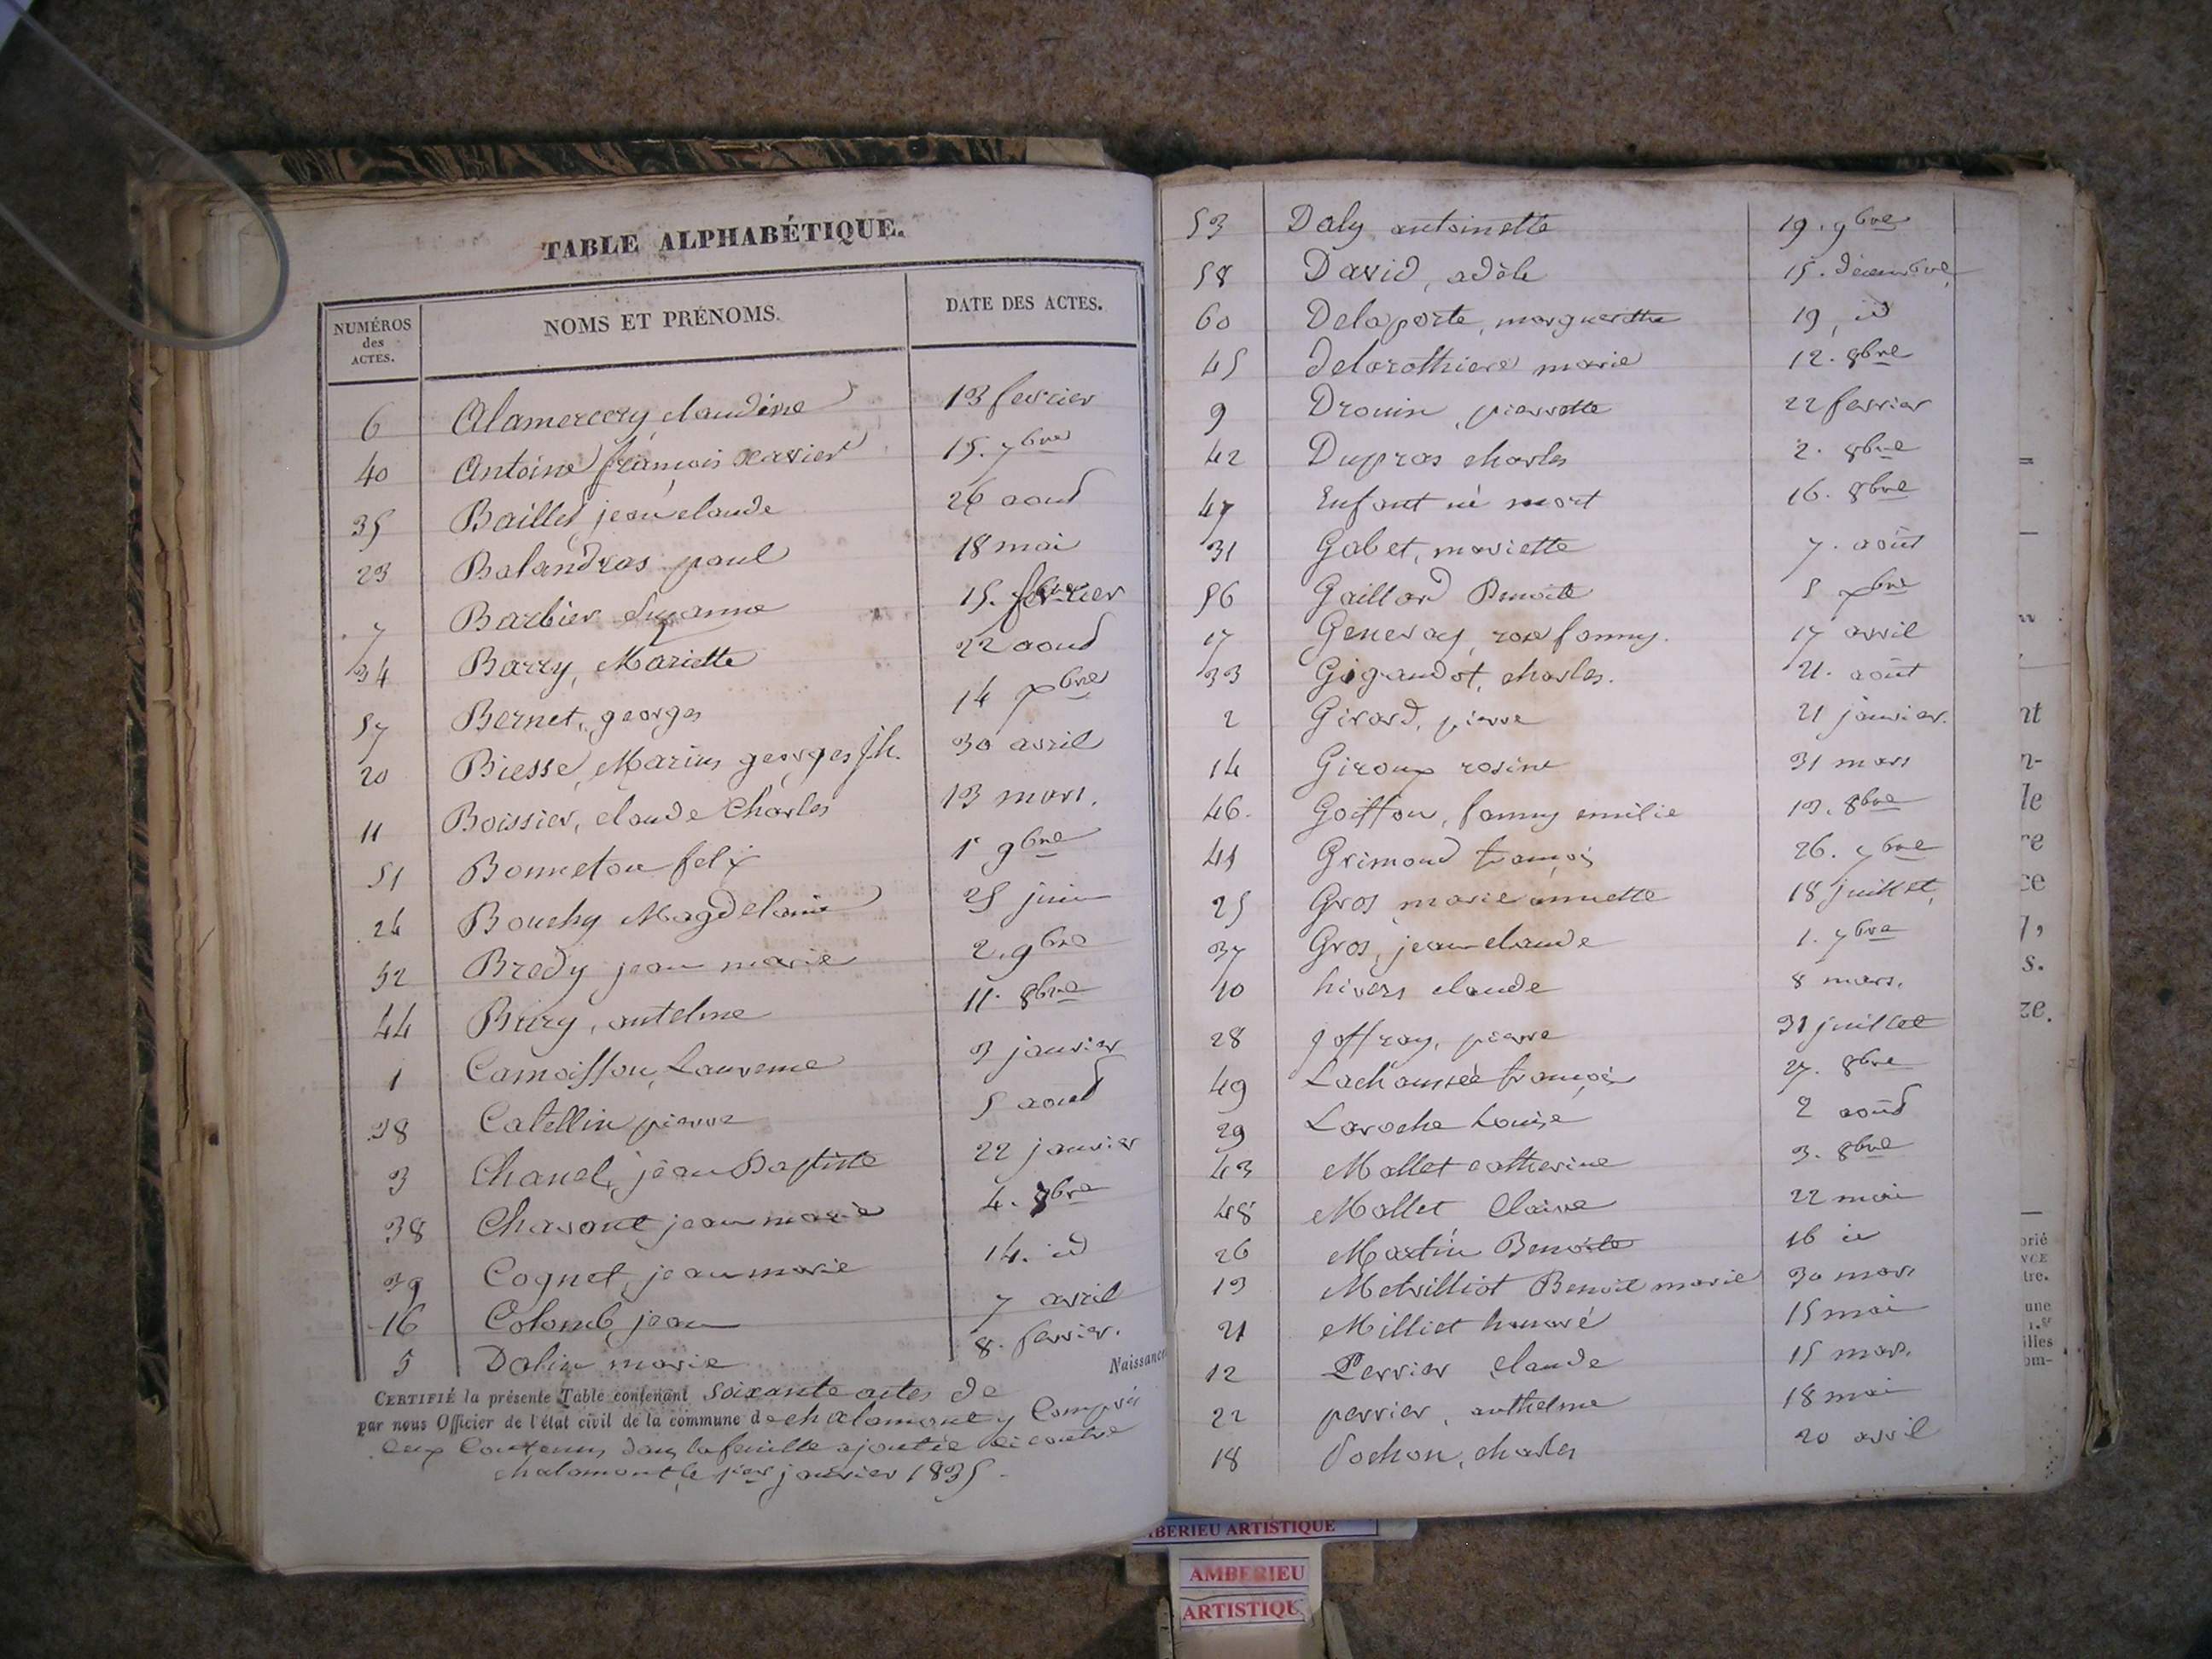 TABLE ALPHABÉTIQUE.
NUMÉROS des ACTES. NOMS ET PRÉNOMS. DATE DES ACTES.
6 Alamercery claudine 13 fevrier
40 Antoine françois xavier 15. 7bre
35 Baillet jean claude 26 aout
23 Balandras paul 18 mai
7 Barbier Suzanne 15. fevrier
34 Barry, Mariette 22 aout
57 Bernet, georges 14 xbre
20 Biesse, Marius georges jh. 30 avril
11 Boissier, claude Charles 13 mars.
51 Bonneton felix 1er 9bre
24 Bouchy Magdelaine 25 juin
52 Bredy jean marie 2. 9bre
44 Bury, antelme 11. 8bre
1 Camoisson, Laurence 3 janvier
38 Catellin pierre 5 aout
3 Chanel, jean Baptiste 22 janvier
38 Chavant jean marie 4. 7bre
39 Cognet, jean marie 14. id
16 Colomb, jean 7 avril
5 Dalin marie 8. fevrier.
Naissance
CERTIFIÉ la présente Table contenant soixante actes de
par nous Officier de l'état civil de la commune de chalamont y Compris
ceux Contenus dans la feuille ajoutée ci contre
chalamont le 1er janvier 1835
53 Daly antoinette 19. 9bre
58 David, adèle 15. décembre
60 Delaporte, marguerithe 19, id
45 delarothiere marie 12. 8bre
9 Drouin, pierrette 22 fevrier
42 Dupras charles 2. 8bre
47 Enfant né mort 16. 8bre
31 Gabet, mariette 7. août
56 Gaillard Benoite 5 xbre
17 Genevay, rose fanny. 17 avril
33 Gigaudot, charles. 21. août
2 Girard, pierre 21 janvier.
14 Giroux rosine 31 mars
46. Goiffon, fanny emilie 13. 8bre
41 Grimaud françois 26. 7bre
25 Gros marie annette 18 juillet
37 Gros, jean claude 1. 7bre
10 hivers claude 8 mars.
28 joffray, pierre 31 juillet
49 Lachaussée françois 27. 8bre
29 Laroche Louise 2 août
43 Mallet catherine 3. 8bre
48 Mallet Claire 22 mai
26 Martin Benoite 16 id
13 Metvilliot Benoit marie 30 mars
21 Milliet honoré 15 mai
12 Perrier claude 15 mars.
22 perrier, anthelme 18 mai
18 Pochon, charles 20 avril
AMBERIEU ARTISTIQUE
AMBERIEU
ARTISTIQUE